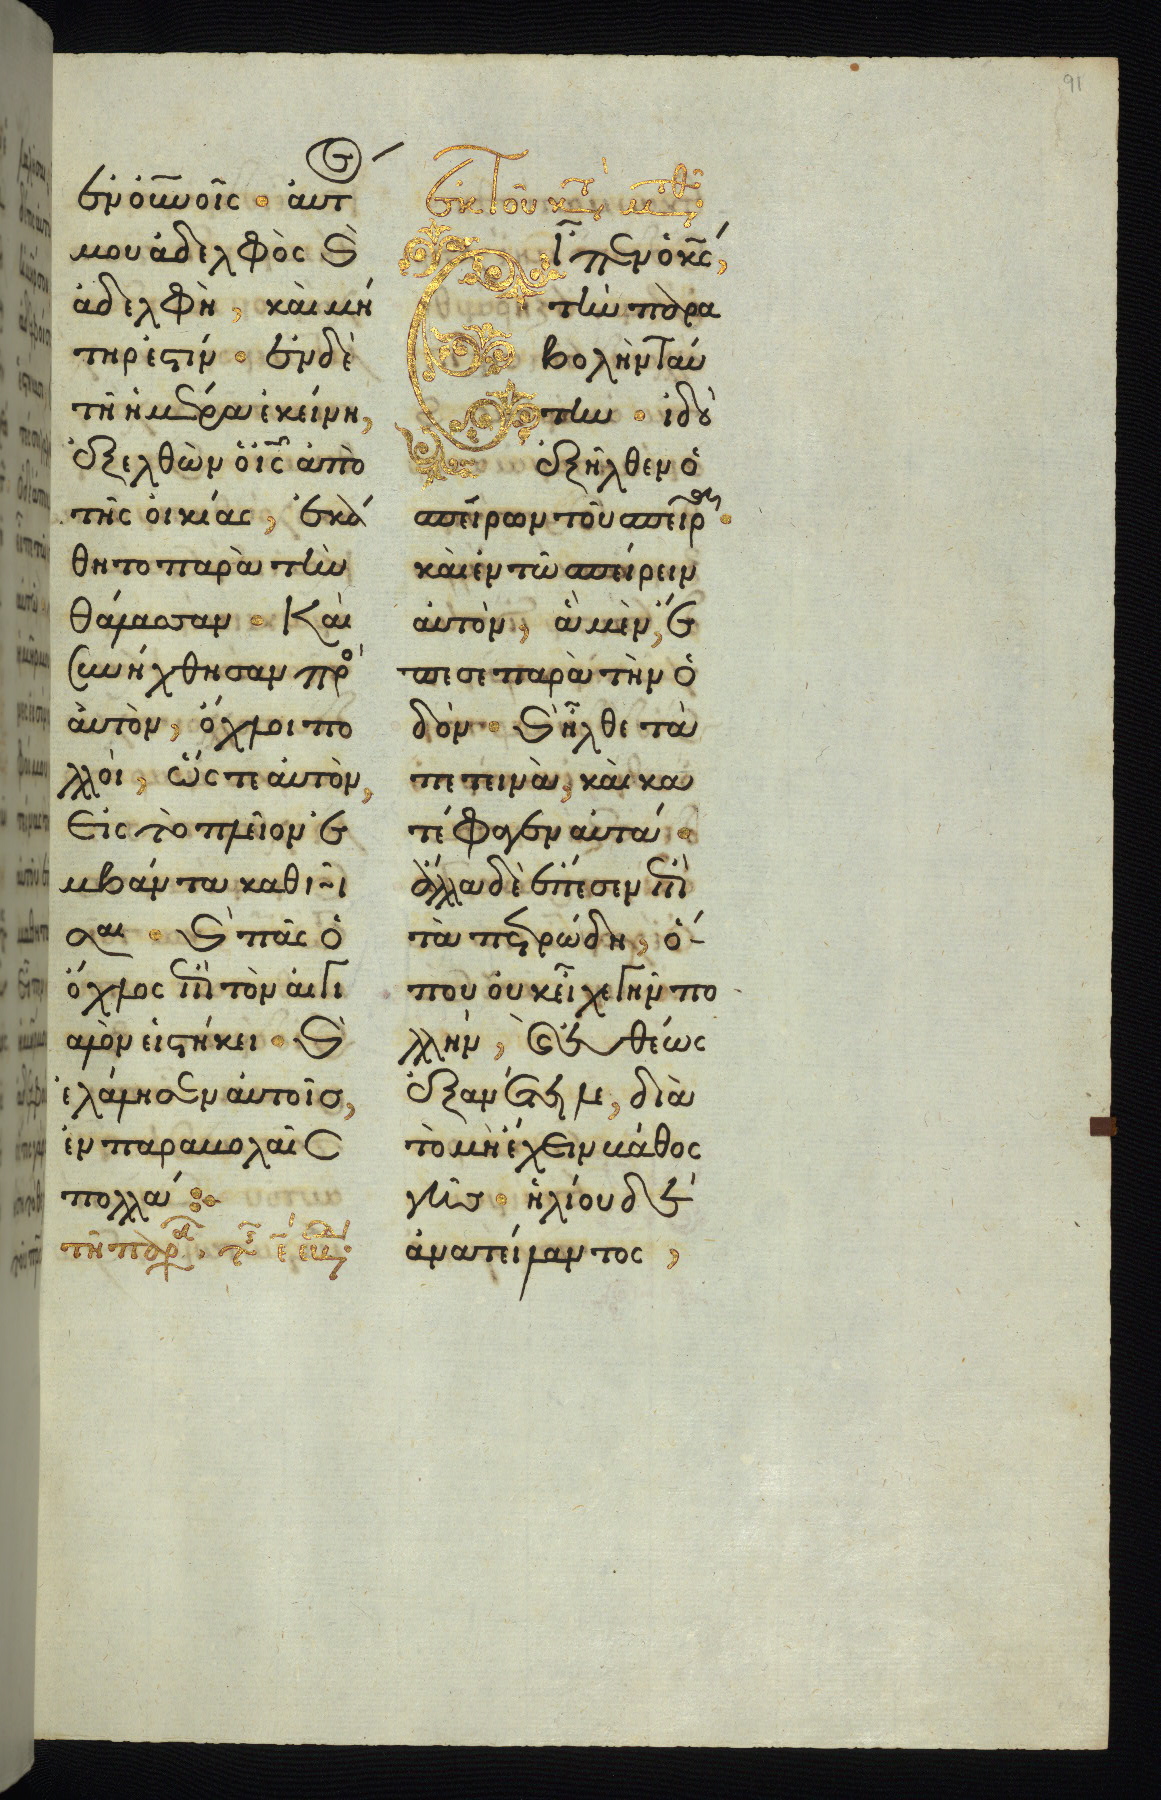 91
ἐν οὐνοῖς · αὐτ
μου ἀδελφὸς ϗ
ἀδελφὴ, καὶ μή
τηρ ἐστίν · ἐν δὲ
τῆ ἡμέρα ἐκείνη,
ἐξελθὼν ὁ ἰς ἀπὸ
τῆς οἰκίας, ἐκά
θητο παρὰ τὴν
θάλασσαν · Καὶ
συνήχθησαν πρ
αὐτὸν, ὄχλοι πο
λλοὶ, ὥστε αὐτὸν,
εἰς τὸ πλεῖον ἐ
μβάντα καθῖ
σαι · ϗ πᾶς ὁ
ὄχλος ἐπὶ τὸν αἰγι
αλὸν εἱστήκει · ϗ
ἐλάλησεν αὐτοῖς,
ἐν παραβολαῖς
πολλά :·
ἐκ τοῦ κτ μτθ
Εἶπεν ὁ κς,
τὴν παρα
βολὴν ταύ
την · ἰδοὺ
ἐξῆλθεν ὁ
σπείρων τοῦ σπεῖρ ·
καὶ ἐν τῶ σπείρειν
αὐτὸν, ἃ μὲν, ἔ
πεσε παρὰ τὴν ὁ
δόν · ϗ ἦλθε τὰ
πετεινὰ, καὶ κα
τέφαγεν αὐτά ·
ἄλλα δὲ ἔπεσεν ἐπὶ
τὰ πετρώδη, ὅ-
που οὐκ εἶχε γῆν πο
λλήν, εὐθέως
ἐξανέτειλε, διὰ
τὸ μὴ ἔχειν βάθος
γῆς · ἡλίου δὲ
ἀνατείλαντος,